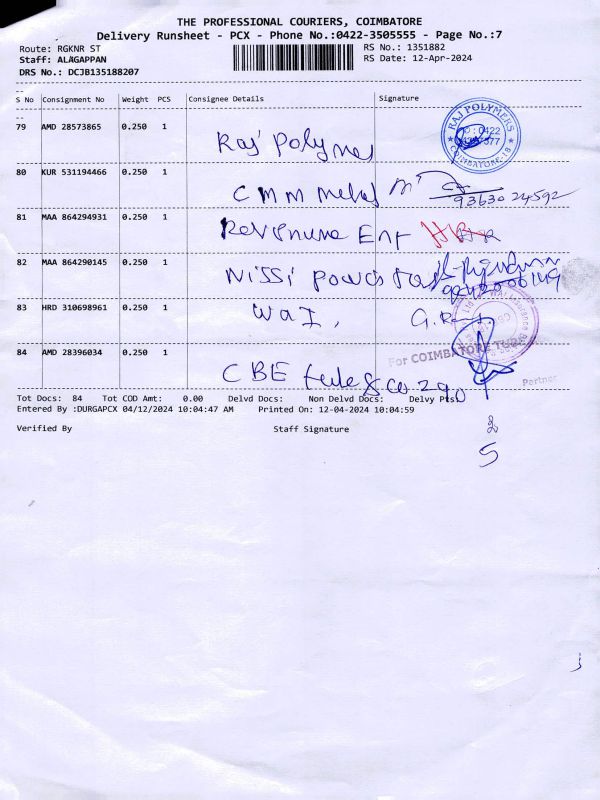 THE PROFESSIONAL COURIERS, COIMBATORE
Delivery Runsheet - PCX - Phone No.:0422-3505555 - Page No.:7
Route: RGKNR ST RS No.: 1351882
Staff: ALAGAPPAN RS Date: 12-Apr-2024
DRS No.: DCJB135188207
S No Consignment No Weight PCS Consignee Details Signature
79 AMD 28573865 0.250 1 Raj Polymes
RAJ POLYMERS
COIMBATORE-18
80 KUR 531194466 0.250 1 CMM metal
93630 24592
81 MAA 864294931 0.250 1 Ent
82 MAA 864290145 0.250 1 Nissi
83 HRD 310698961 0.250 1 WaI, G.
For COIMBATORE TUBE
84 AMD 28396034 0.250 1 CBE & co 290
Partner
Tot Docs: 84 Tot COD Amt: 0.00 Delvd Docs: Non Delvd Docs: Delvy Pts:
Entered By :DURGAPCX 04/12/2024 10:04:47 AM Printed On: 12-04-2024 10:04:59
Verified By Staff Signature
2
5